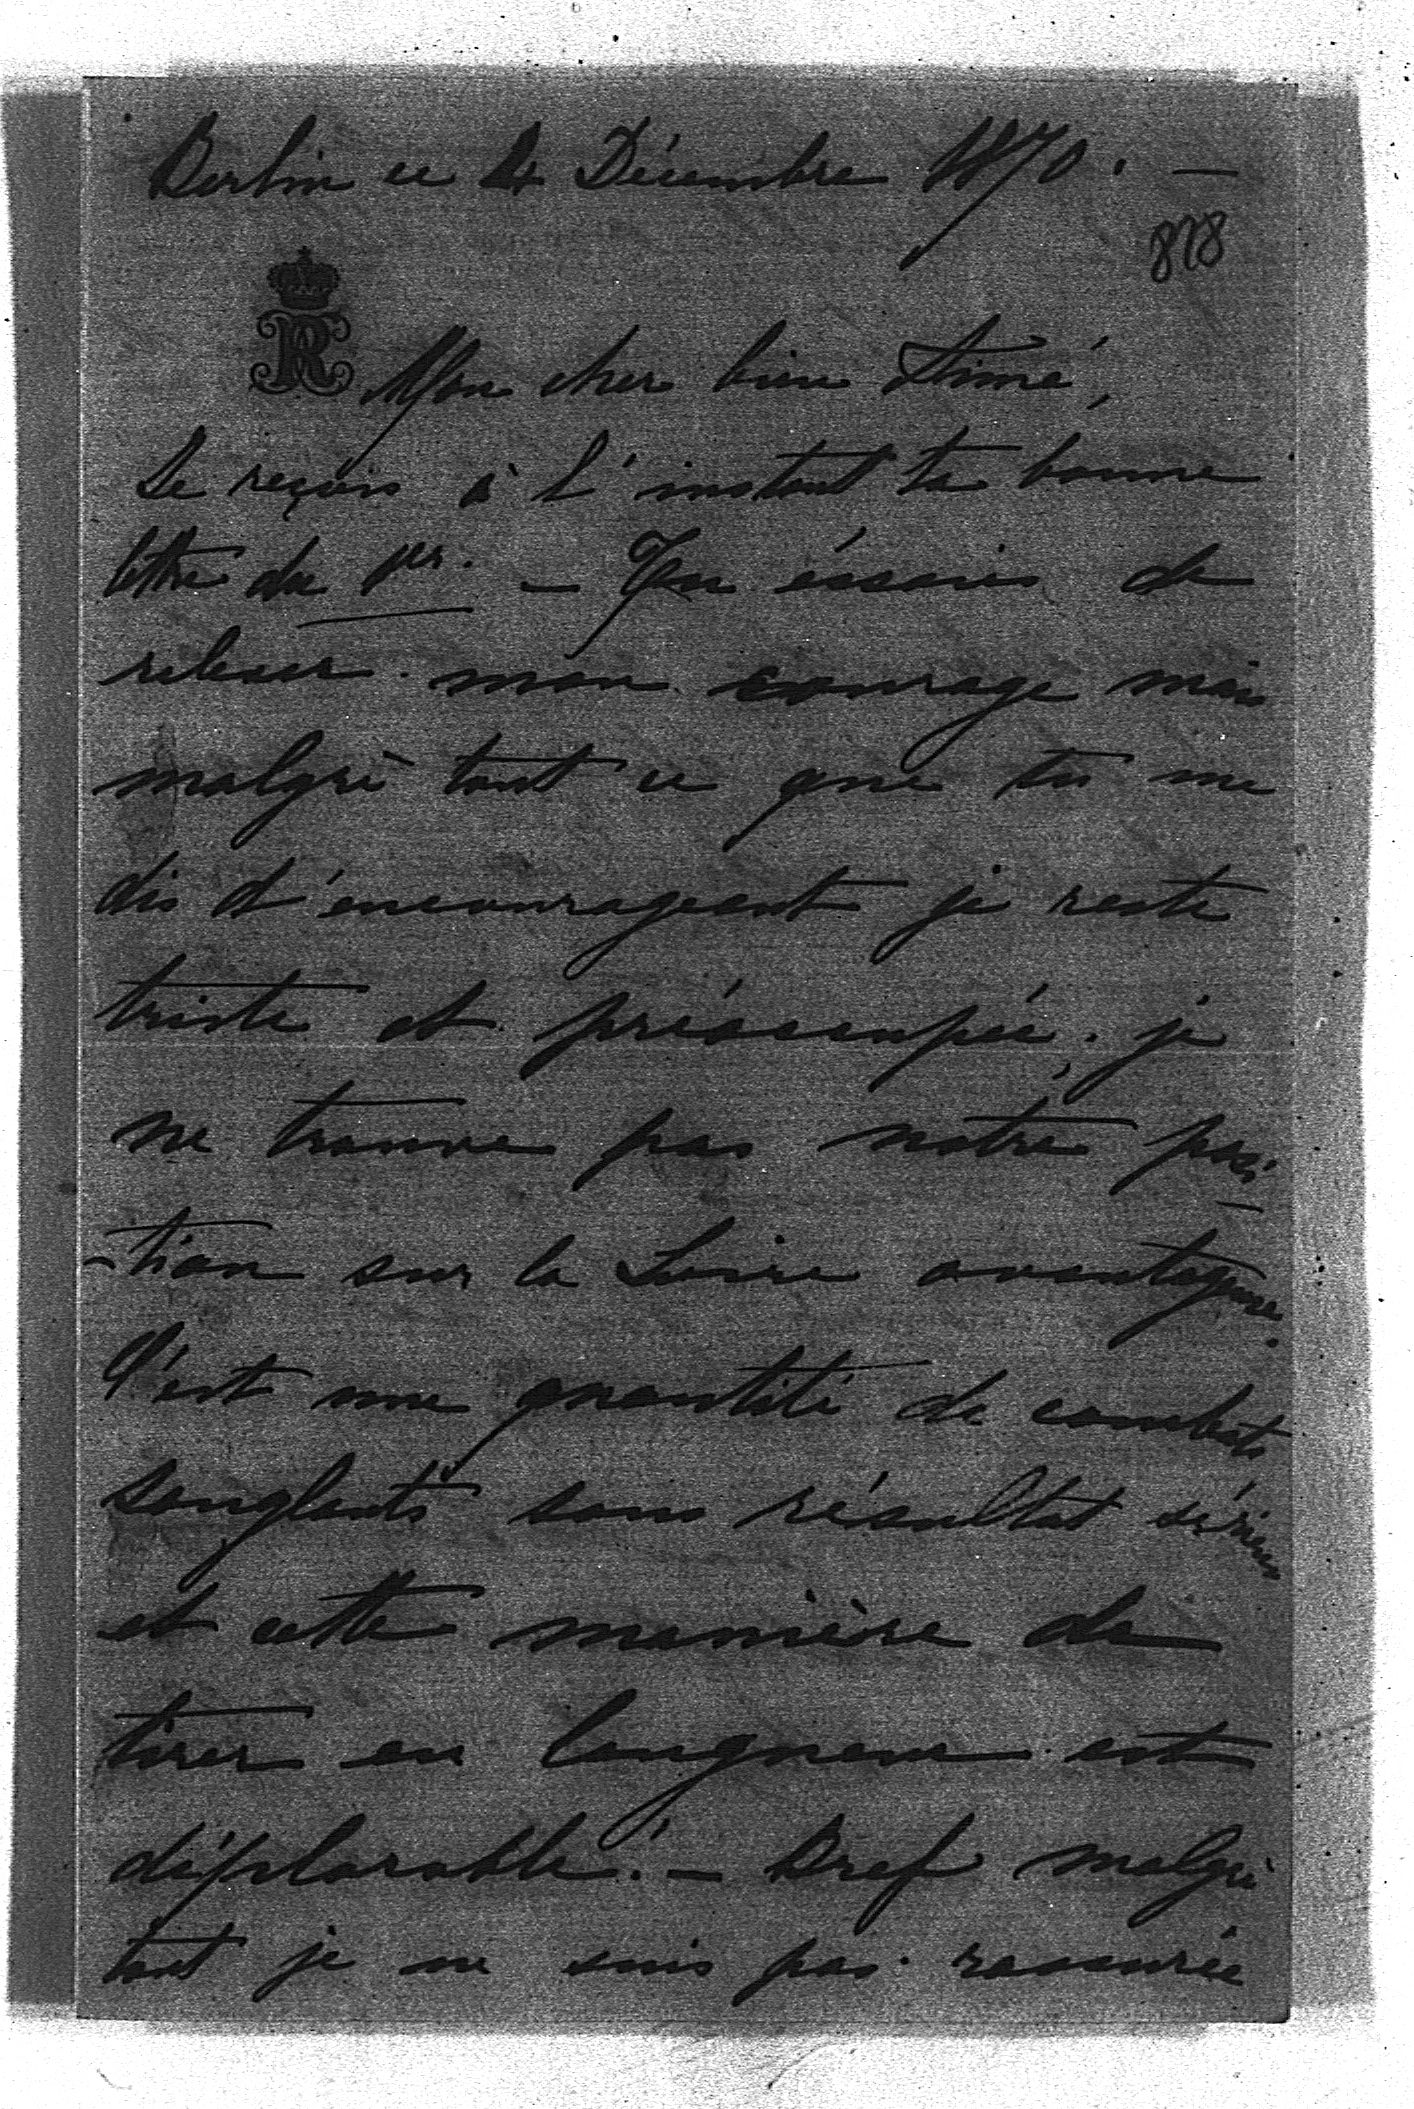 Berlin ce 4 Décembre 1870. —
878
R
Mon cher bien Aimé,
Je reçois à l'instant ta bonne
lettre du 1er. — Tu éssaies de
relever mon courage mais
malgrè tout ce que tu me
dis d'encourageant je reste
triste et préoccupée, je
ne trouve pas notre posi-
-tion sur la Loire avantageuse.
C'est une quantité de combats
sanglants sans résultat sérieux
et cette manière de
tirer en longueur est
déplorable! — Bref malgrè
tout je ne suis pas rassurée